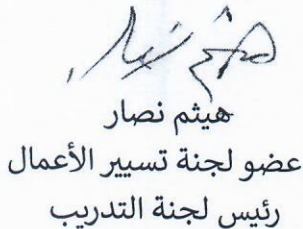 هيثم نصار
عضو لجنة تسيير الأعمال
رئيس لجنة التدريب